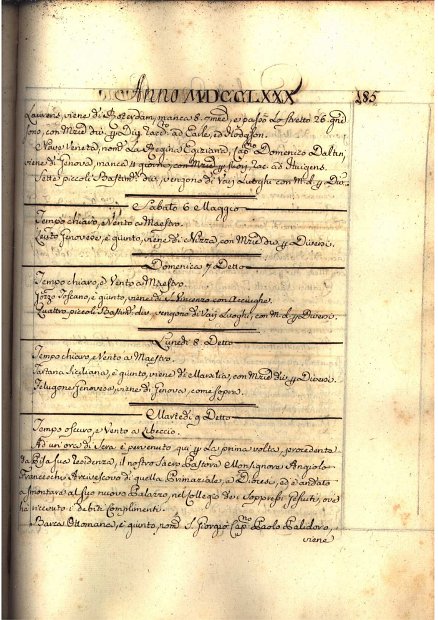 Anno MDCCLXXX 185
Laurens, viene di Roterdam, manca 8. mesi, e passò Lo stretto 26. gni
sono, con Mrzie div. p Div. Racc. ad Earle, ed Hodgson.
Nave Veneta, nom. La Regina Egiziana, Capno Domenico Dalin,
viene di Genova, manca 4 giorni, con Mrzie p suoi, rac. ad Huigens.
Sette piccoli Bastimti div. vengono di Varj Luoghi con M. d. p Div.
Sabato 6 Maggio
Tempo chiaro, e Vento a Maestro.
Leuto Genovese, è giunto, viene di Nizza, con Mrzie div. p Diversi.
Domenica 7 Detto
Tempo chiaro, e Vento a Maestro.
Gozzo Toscano, è giunto, viene di S. Vincenzo con Acciughe.
Quattro piccoli Bastimti div. vengono di Varj Luoghi, con M. d. p Diversi.
Lunedì 8. Detto
Tempo chiaro, e Vento a Maestro.
Tartana Siciliana, è giunto, viene di Marsilia, con Mrzie div. p Diversi.
Felugone Genovese, viene di Genova, come sopra.
Martedì 9 Detto
Tempo oscuro, e Vento a Libeccio.
Ad un'ora di Sera è pervenuto qui p La prima volta, procedente
da Pisa sua Residenza, il nostro Sacro Pastore Monsignore Angiolo
Franceschi Arcivescovo di quella Primaziale, e Diocesi, ed è andato
a smontare al suo nuovo Palazzo, nel Collegio de' Soppressi Gesuiti, ove
ha ricevuto i debiti Complimenti.
Barca Ottomana, è giunto, nome S. Giorgio Capno Paolo Palidoro,
viene